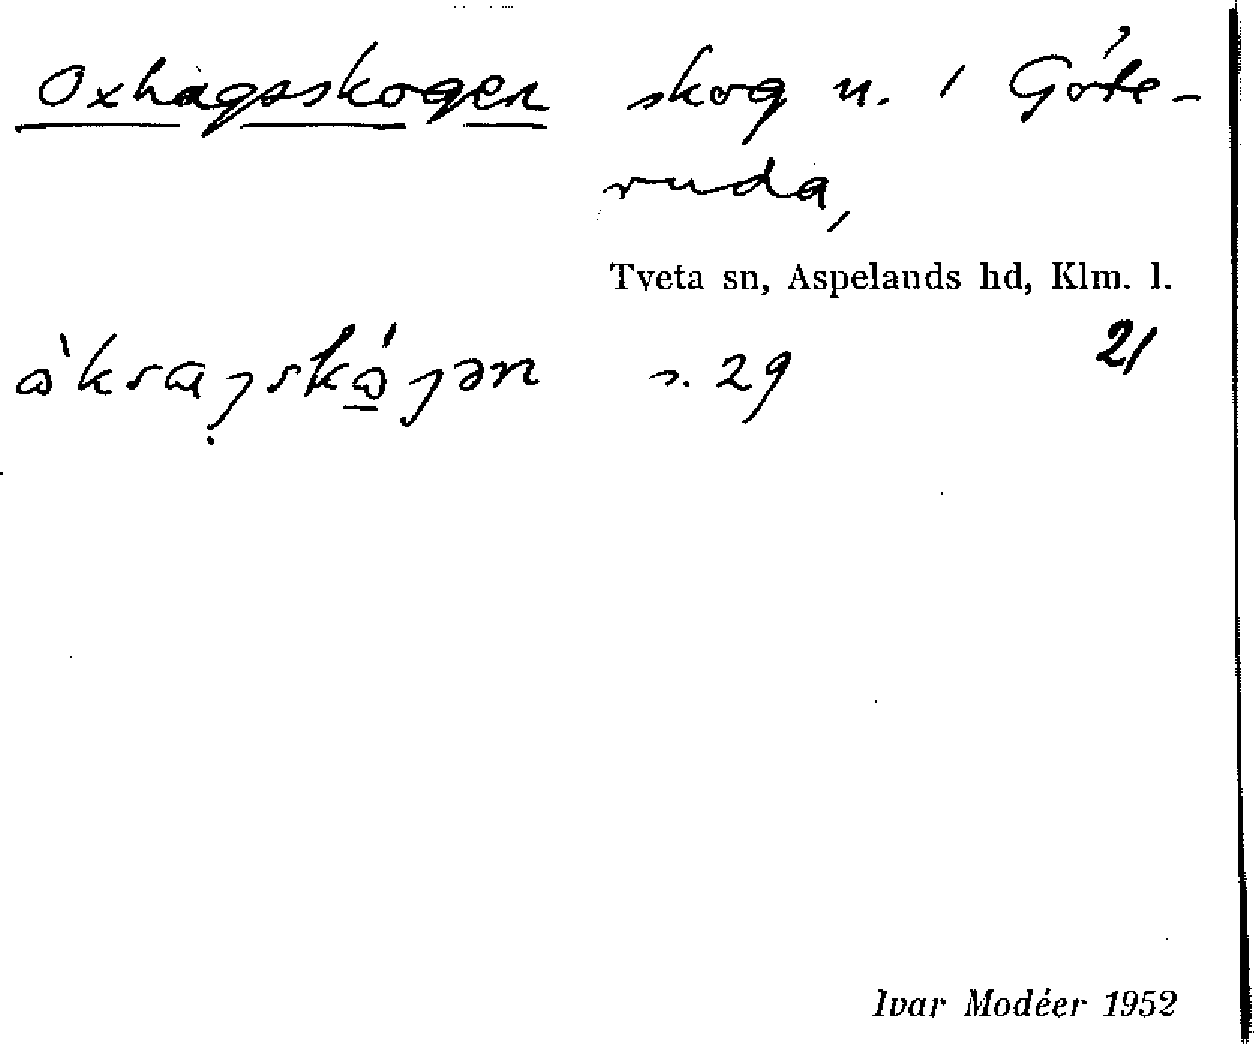 Oxhagsskogen skog n. i Göte-
ruda,
Tveta sn, Aspelands hd, Klm. l.
s. 29 21
Ivar Modéer 1952